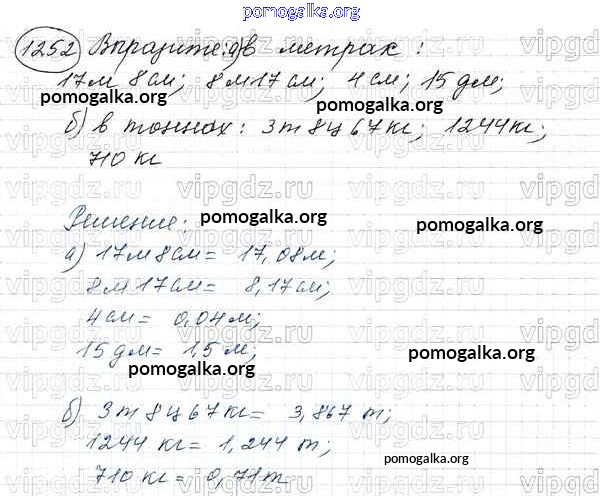 pomogalka.org
1252 Выразите: а) в метрах:
17м 8см; 8м17см; 4см; 15дм;
pomogalka.org pomogalka.org
б) в тоннах: 3т8ц67кг; 1244кг;
710 кг
vipgdz.ru vipgdz.ru vipgdz.ru
Решение: pomogalka.org pomogalka.org
а) 17м8см= 17,08м;
8м17см= 8,17см;
4см= 0,04м;
15дм= 1,5м; pomogalka.org
б) 3т8ц67кг= 3,867т;
1244 кг= 1,244т;
710кг= 0,71т pomogalka.org